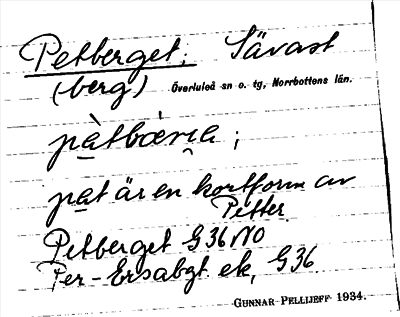 Petberget. Sävast
(berg) Överluleå sn o. tg, Norrbottens län.
pàtbærɩa ;
pat är en kortform av
Petter
Petberget G36 NO
Per-Ersabgt ek, G36
GUNNAR PELLIJEFF 1934.